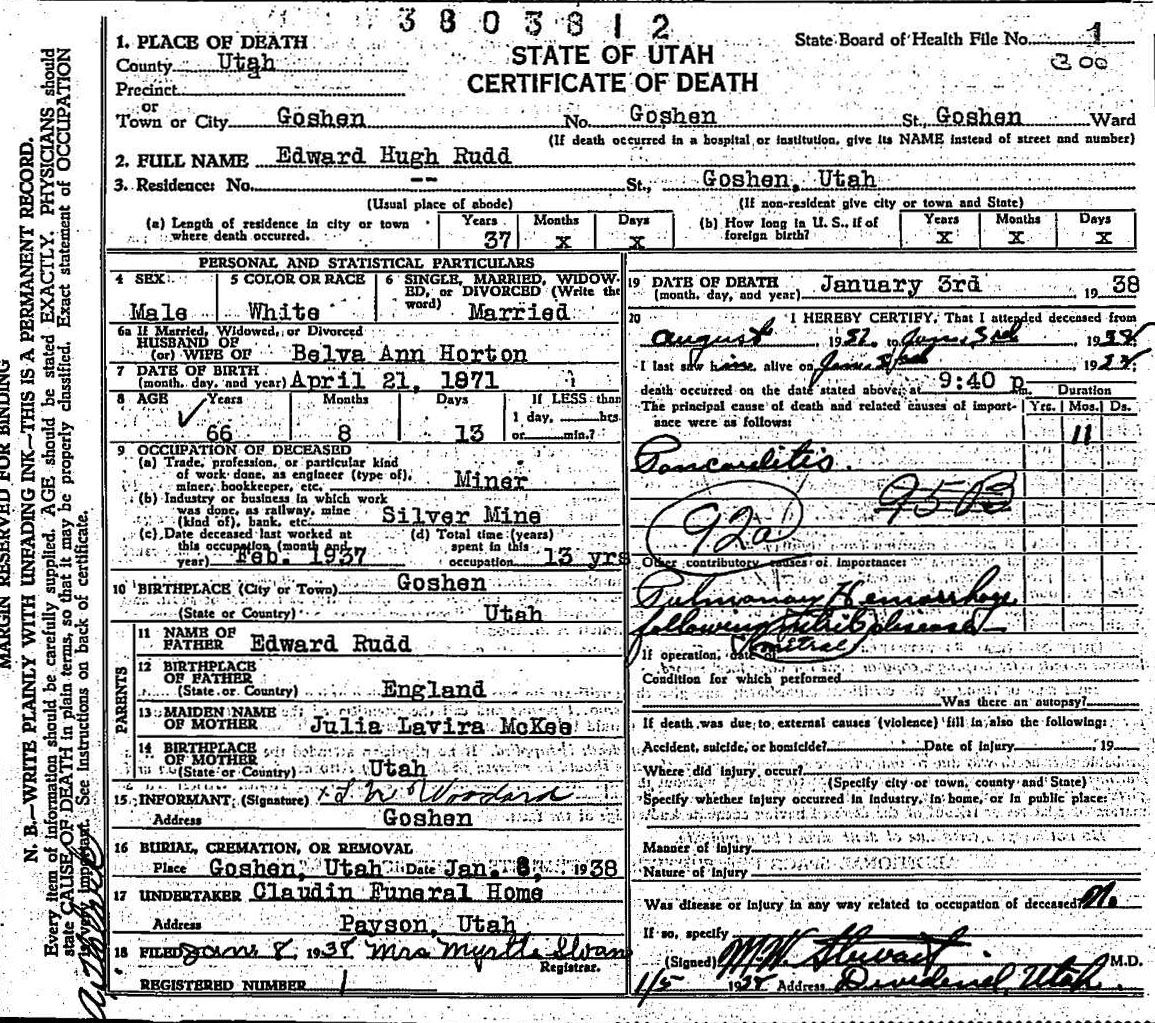 3803812
STATE OF UTAH
CERTIFICATE OF DEATH
State Board of Health File No. 1
300
1. PLACE OF DEATH
County Utah
Precinct
or
Town or City Goshen No. Goshen St., Goshen Ward
(If death occurred in a hospital or institution, give its NAME instead of street and number)
2. FULL NAME Edward Hugh Rudd
3. Residence: No. -- St., Goshen, Utah
(Usual place of abode) (If non-resident give city or town and State)
(a) Length of residence in city or town where death occurred. Years 37 Months X Days X
(b) How long in U. S., if of foreign birth? Years X Months X Days X
PERSONAL AND STATISTICAL PARTICULARS
4 SEX Male
5 COLOR OR RACE White
6 SINGLE, MARRIED, WIDOWED, or DIVORCED (Write the word) Married
6a If Married, Widowed, or Divorced
HUSBAND OF
(or) WIFE OF Belva Ann Horton
7 DATE OF BIRTH
(month, day, and year) April 21, 1871
8 AGE Years 66 Months 8 Days 13 If LESS than 1 day, hrs. or min.?
9 OCCUPATION OF DECEASED
(a) Trade, profession, or particular kind
of work done, as engineer (type of),
miner, bookkeeper, etc. Miner
(b) Industry or business in which work
was done, as railway, mine
(kind of), bank, etc. Silver Mine
(c) Date deceased last worked at
this occupation (month and
year) Feb. 1937
(d) Total time (years)
spent in this
occupation 13 yrs
10 BIRTHPLACE (City or Town) Goshen
(State or Country) Utah
PARENTS
11 NAME OF
FATHER Edward Rudd
12 BIRTHPLACE
OF FATHER
(State or Country) England
13 MAIDEN NAME
OF MOTHER Julia Lavira McKee
14 BIRTHPLACE
OF MOTHER
(State or Country) Utah
15 INFORMANT, (Signature) Woodard
Address Goshen
16 BURIAL, CREMATION, OR REMOVAL
Place Goshen, Utah Date Jan. 6, 1938
17 UNDERTAKER Claudin Funeral Home
Address Payson, Utah
18 FILED Jan 8, 1938 Mrs Myrtle Sloan
Registrar.
REGISTERED NUMBER 1
19 DATE OF DEATH
(month, day, and year) January 3rd 1938
20 I HEREBY CERTIFY, That I attended deceased from
August, 1937, to Jan. 3rd 1938
I last saw him alive on Jan 3rd 19
death occurred on the date stated above, at 9:40 p m. Duration
The principal cause of death and related causes of importance were as follows: Yrs. Mos. Ds.
11
Pancarditis.
95B
92a
Other contributory causes of importance:
Pulmonary Hemorrhage
following disease
(mitral)
If operation, date of
Condition for which performed
Was there an autopsy?
If death was due to external causes (violence) fill in also the following:
Accident, suicide, or homicide? Date of injury 19
Where did injury occur?
(Specify city or town, county and State)
Specify whether injury occurred in industry, in home, or in public place:
Manner of injury
Nature of injury
Was disease or injury in any way related to occupation of deceased? No.
If so, specify
(Signed) M.W. Stewart M.D.
1/5 1938 Address Dividend, Utah
MARGIN RESERVED FOR BINDING
N. B.—WRITE PLAINLY WITH UNFADING INK—THIS IS A PERMANENT RECORD.
Every item of information should be carefully supplied. AGE should be stated EXACTLY. PHYSICIANS should
state CAUSE OF DEATH in plain terms, so that it may be properly classified. Exact statement of OCCUPATION
is very important. See instructions on back of certificate.